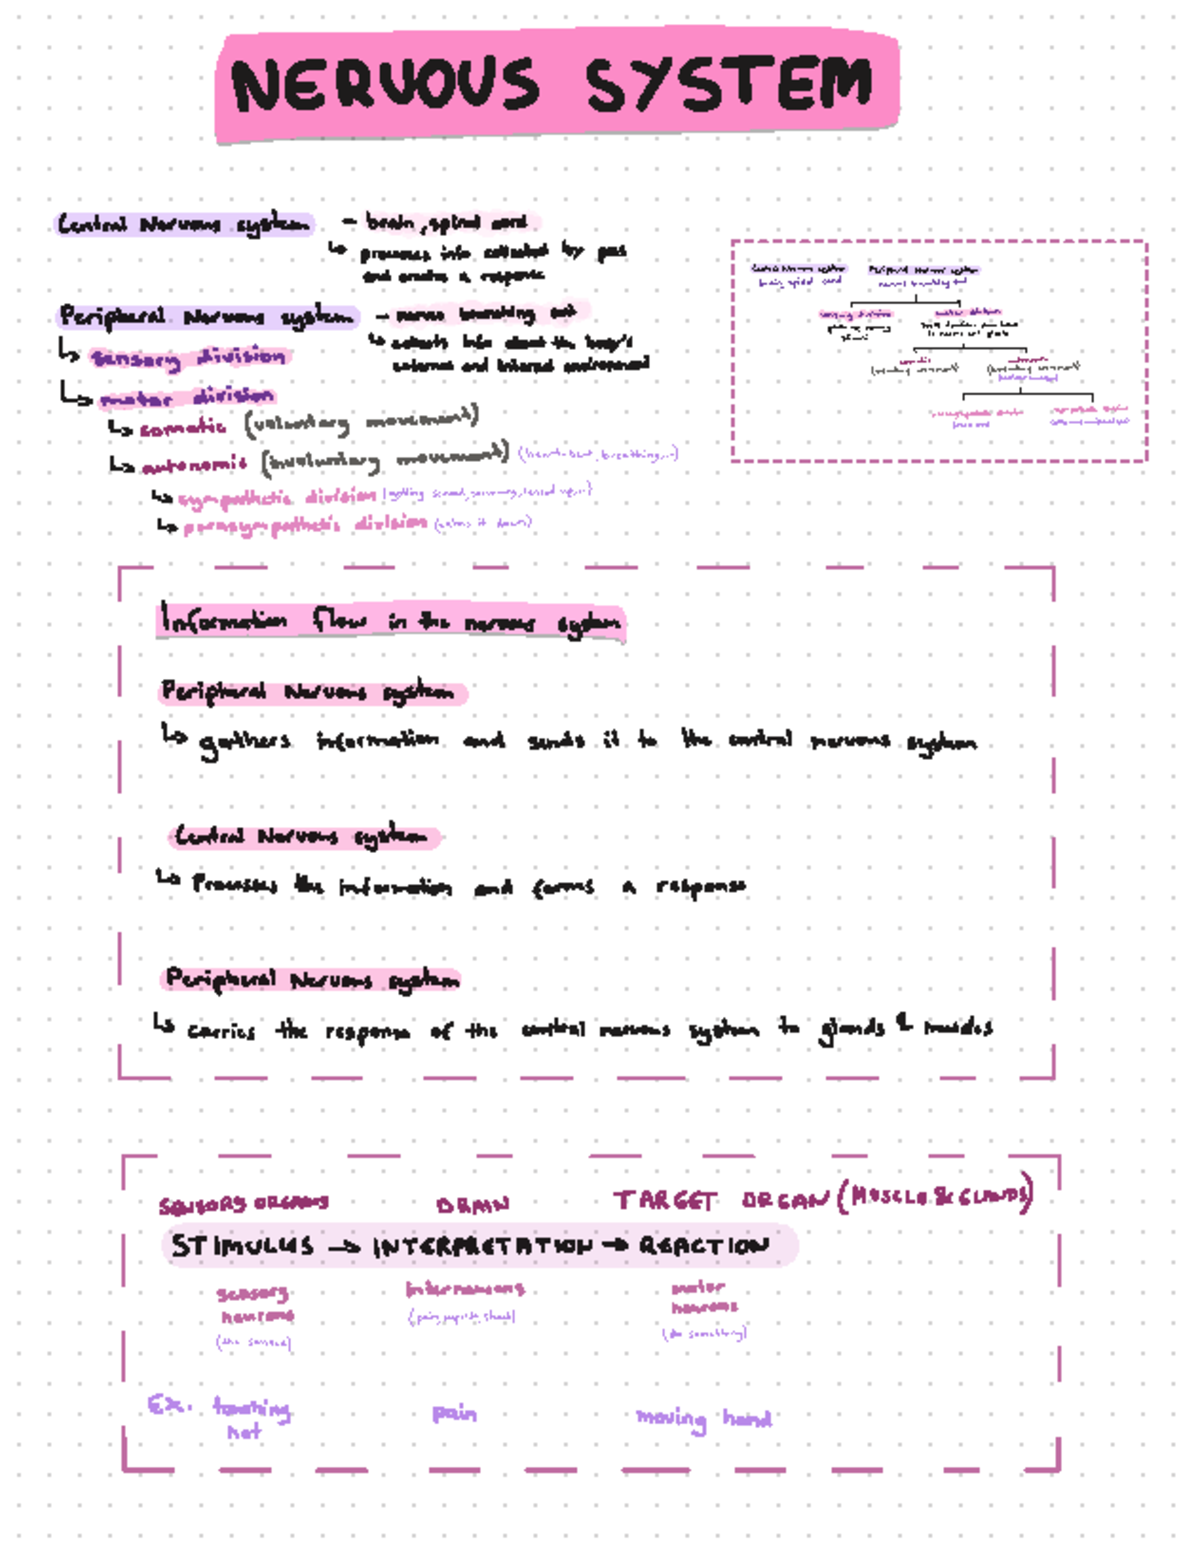 NERVOUS SYSTEM
Central Nervous system - brain, spinal cord
↳ processes info collected by pns
and creates a response
Peripheral Nervous system - nerves branching out
↳ collects info about the body's
external and internal environment
↳ sensory division
↳ motor division
↳ somatic (voluntary movement)
↳ autonomic (involuntary movement) (heartbeat, breathing...)
↳ sympathetic division
↳ parasympathetic division (calms it down)
Central Nervous system Peripheral Nervous system
brain, spinal cord nerves branching out
sensory division motor division
somatic autonomic
(voluntary movement) (involuntary movement)
parasympathetic division sympathetic division
Information flow in the nervous system
Peripheral Nervous system
↳ gathers information and sends it to the central nervous system
Central Nervous system
↳ Processes the information and forms a response
Peripheral Nervous system
↳ carries the response of the central nervous system to glands & muscles
SENSORY ORGANS BRAIN TARGET ORGAN (MUSCLE & GLANDS)
STIMULUS → INTERPRETATION → REACTION
sensory interneurons motor
neurons neurons
(the senses) (do something)
Ex. touching pain moving hand
hot